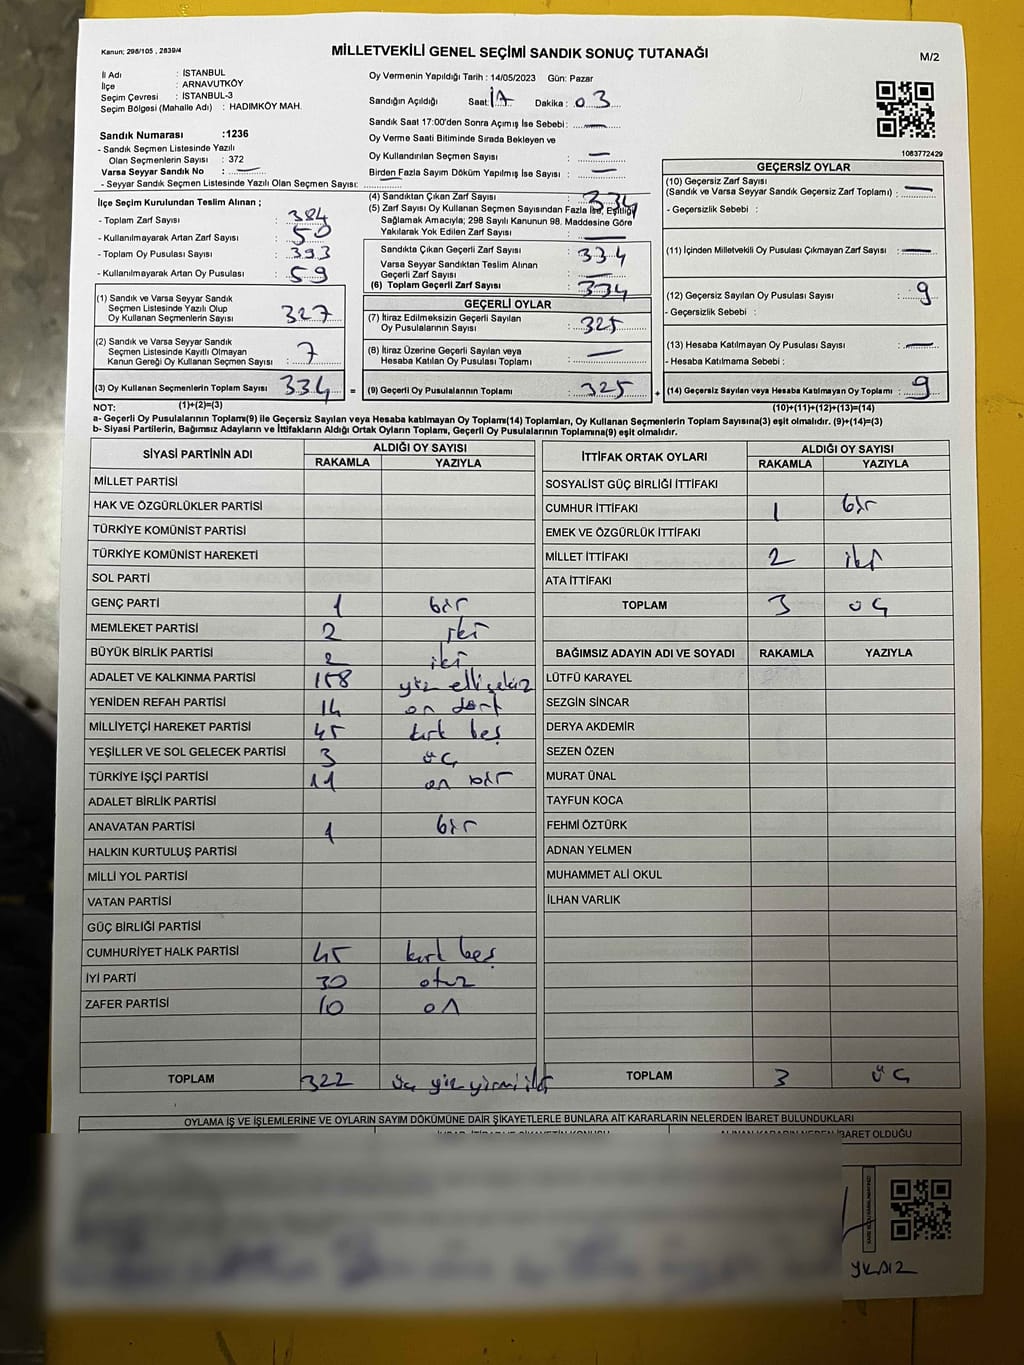 Kanun; 298/105 , 2839/4
MİLLETVEKİLİ GENEL SEÇİMİ SANDIK SONUÇ TUTANAĞI
M/2
İl Adı : İSTANBUL
İlçe : ARNAVUTKÖY
Seçim Çevresi : İSTANBUL-3
Seçim Bölgesi (Mahalle Adı) : HADIMKÖY MAH.
Sandık Numarası :1236
- Sandık Seçmen Listesinde Yazılı
Olan Seçmenlerin Sayısı : 372
Varsa Seyyar Sandık No : —
- Seyyar Sandık Seçmen Listesinde Yazılı Olan Seçmen Sayısı:
Oy Vermenin Yapıldığı Tarih : 14/05/2023 Gün: Pazar
Sandığın Açıldığı Saat: 17 Dakika : 03
Sandık Saat 17:00'den Sonra Açımış İse Sebebi : —
Oy Verme Saati Bitiminde Sırada Bekleyen ve
Oy Kullandırılan Seçmen Sayısı : —
Birden Fazla Sayım Döküm Yapılmış İse Sayısı : —
1083772429
İlçe Seçim Kurulundan Teslim Alınan ;
- Toplam Zarf Sayısı : 384
- Kullanılmayarak Artan Zarf Sayısı : 50
- Toplam Oy Pusulası Sayısı : 393
- Kullanılmayarak Artan Oy Pusulası : 59
(1) Sandık ve Varsa Seyyar Sandık
Seçmen Listesinde Yazılı Olup
Oy Kullanan Seçmenlerin Sayısı : 327
(2) Sandık ve Varsa Seyyar Sandık
Seçmen Listesinde Kayıtlı Olmayan
Kanun Gereği Oy Kullanan Seçmen Sayısı : 7
(3) Oy Kullanan Seçmenlerin Toplam Sayısı : 334 =
(1)+(2)=(3)
(4) Sandıktan Çıkan Zarf Sayısı : 334
(5) Zarf Sayısı Oy Kullanan Seçmen Sayısından Fazla İse, Eşitliği
Sağlamak Amacıyla; 298 Sayılı Kanunun 98. Maddesine Göre
Yakılarak Yok Edilen Zarf Sayısı : —
Sandıkta Çıkan Geçerli Zarf Sayısı : 334
Varsa Seyyar Sandıktan Teslim Alınan
Geçerli Zarf Sayısı : —
(6) Toplam Geçerli Zarf Sayısı : 334
GEÇERLİ OYLAR
(7) İtiraz Edilmeksizin Geçerli Sayılan
Oy Pusulalarının Sayısı : 325
(8) İtiraz Üzerine Geçerli Sayılan veya
Hesaba Katılan Oy Pusulası Toplamı : —
(9) Geçerli Oy Pusulalarının Toplamı : 325 +
GEÇERSİZ OYLAR
(10) Geçersiz Zarf Sayısı
(Sandık ve Varsa Seyyar Sandık Geçersiz Zarf Toplamı) : —
- Geçersizlik Sebebi :
(11) İçinden Milletvekili Oy Pusulası Çıkmayan Zarf Sayısı : —
(12) Geçersiz Sayılan Oy Pusulası Sayısı : 9
- Geçersizlik Sebebi :
(13) Hesaba Katılmayan Oy Pusulası Sayısı : —
- Hesaba Katılmama Sebebi :
(14) Geçersiz Sayılan veya Hesaba Katılmayan Oy Toplamı : 9
(10)+(11)+(12)+(13)=(14)
NOT:
a- Geçerli Oy Pusulalarının Toplamı(9) ile Geçersiz Sayılan veya Hesaba katılmayan Oy Toplamı(14) Toplamları, Oy Kullanan Seçmenlerin Toplam Sayısına(3) eşit olmalıdır. (9)+(14)=(3)
b- Siyasi Partilerin, Bağımsız Adayların ve İttifakların Aldığı Ortak Oyların Toplamı, Geçerli Oy Pusulalarının Toplamına(9) eşit olmalıdır.
SİYASİ PARTİNİN ADI ALDIĞI OY SAYISI
RAKAMLA YAZIYLA
MİLLET PARTİSİ
HAK VE ÖZGÜRLÜKLER PARTİSİ
TÜRKİYE KOMÜNİST PARTİSİ
TÜRKİYE KOMÜNİST HAREKETİ
SOL PARTİ
GENÇ PARTİ 1 bir
MEMLEKET PARTİSİ 2 iki
BÜYÜK BİRLİK PARTİSİ 2 iki
ADALET VE KALKINMA PARTİSİ 158 yüz elli sekiz
YENİDEN REFAH PARTİSİ 14 on dört
MİLLİYETÇİ HAREKET PARTİSİ 45 kırk beş
YEŞİLLER VE SOL GELECEK PARTİSİ 3 üç
TÜRKİYE İŞÇİ PARTİSİ 11 on bir
ADALET BİRLİK PARTİSİ
ANAVATAN PARTİSİ 1 bir
HALKIN KURTULUŞ PARTİSİ
MİLLİ YOL PARTİSİ
VATAN PARTİSİ
GÜÇ BİRLİĞİ PARTİSİ
CUMHURİYET HALK PARTİSİ 45 kırk beş
İYİ PARTİ 30 otuz
ZAFER PARTİSİ 10 on
TOPLAM 322 üç yüz yirmi iki
İTTİFAK ORTAK OYLARI ALDIĞI OY SAYISI
RAKAMLA YAZIYLA
SOSYALİST GÜÇ BİRLİĞİ İTTİFAKI
CUMHUR İTTİFAKI 1 bir
EMEK VE ÖZGÜRLÜK İTTİFAKI
MİLLET İTTİFAKI 2 iki
ATA İTTİFAKI
TOPLAM 3 üç
BAĞIMSIZ ADAYIN ADI VE SOYADI RAKAMLA YAZIYLA
LÜTFÜ KARAYEL
SEZGİN SİNCAR
DERYA AKDEMİR
SEZEN ÖZEN
MURAT ÜNAL
TAYFUN KOCA
FEHMİ ÖZTÜRK
ADNAN YELMEN
MUHAMMET ALİ OKUL
İLHAN VARLIK
TOPLAM 3 üç
OYLAMA İŞ VE İŞLEMLERİNE VE OYLARIN SAYIM DÖKÜMÜNE DAİR ŞİKAYETLERLE BUNLARA AİT KARARLARIN NELERDEN İBARET BULUNDUKLARI
ALINAN KARARIN NEDEN İBARET OLDUĞU